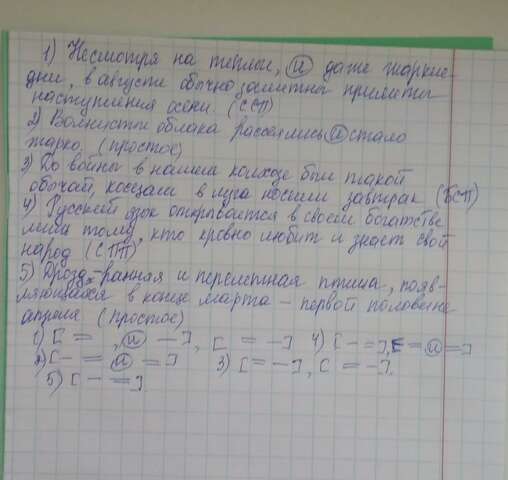 1) Несмотря на теплые, и даже жаркие
дни, в августе обычно заметны приметы
наступления осени. (ССП)
2) Волнистые облака рассеялись и стало
жарко. (простое)
3) До войны в нашем колхозе был такой
обычай, косцам в луга носили завтрак (БСП)
4) Русский язык открывается в своём богатстве
лишь тому, кто кровно любит и знает свой
народ (СПП)
5) Дрозд - ранняя и перелетная птица, появ-
ляющаяся в конце марта - первой половине
апреля (простое)
1) [ = , и - ], [ = - ] 4) [ - = ], = и = ]
2) [ - = и = ] 3) [ = - ], [ = - ].
5) [ - = ]